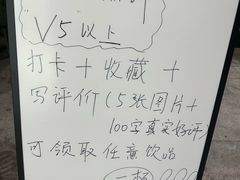 V5以上
打卡+收藏+
写评价(5张图片+
100字真实好评)
可领取任意饮品
一杯